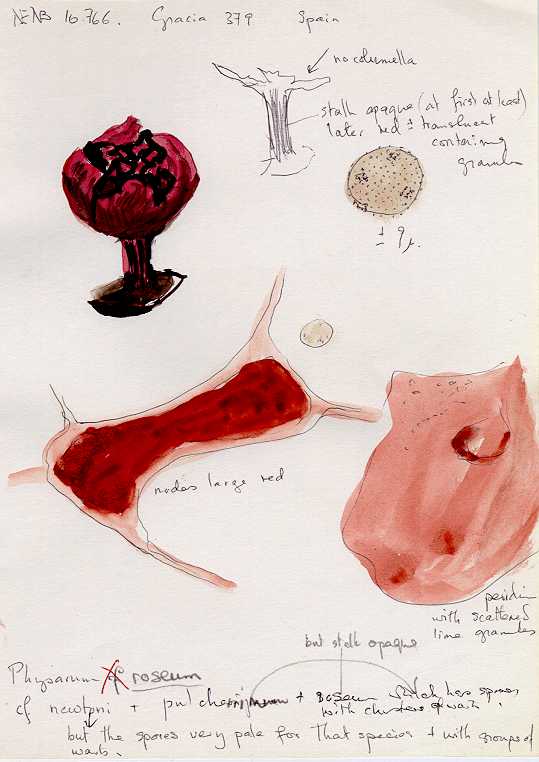 NENB 10.766. Gracia 379 Spain
no columella
stalk opaque (at first at least)
later red ± translucent
containing
granules
± 9µ.
nodes large red
peridium
with scattered
lime granules
but stalk opaque
Physarum cf roseum
cf newtoni + pulcherrimum + roseum which has spores
with clusters of warts.
but the spores very pale for that species + with groups of
warts.